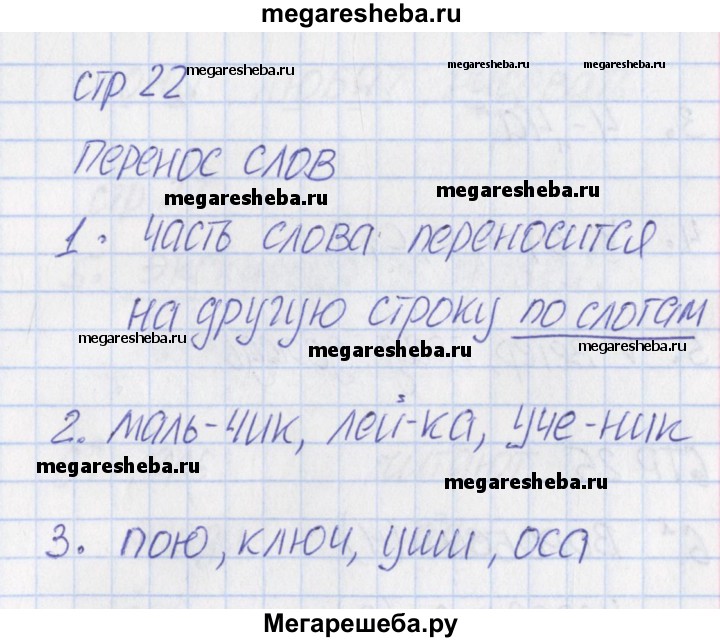 megaresheba.ru
стр 22
megaresheba.ru
megaresheba.ru
megaresheba.ru
перенос слов
megaresheba.ru
megaresheba.ru
1. часть слова переносится
на другую строку по слогам
megaresheba.ru
megaresheba.ru
megaresheba.ru
2. маль-чик, лей-ка, уче-ник
megaresheba.ru
megaresheba.ru
3. пою, ключ, уши, оса
Мегарешеба.ру